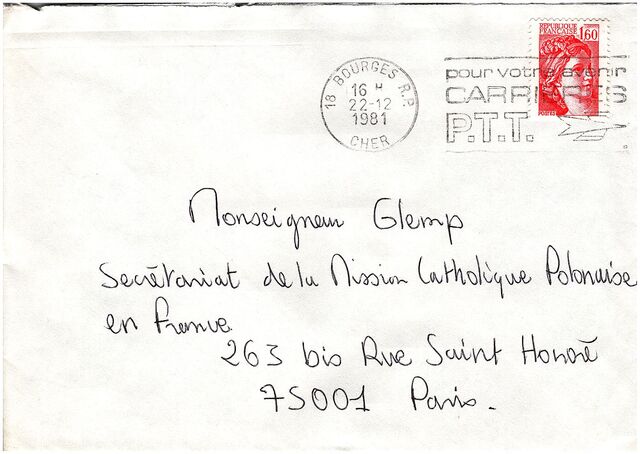 REPUBLIQUE
FRANÇAISE
1,60
POSTES
18 BOURGES R.P.
16 H
22-12
1981
CHER
pour votre avenir
CARRIERES
P.T.T.
Monseigneur Glemp
Secrétariat de la Mission Catholique Polonaise
en France
263 bis Rue Saint Honoré
75001 Paris.